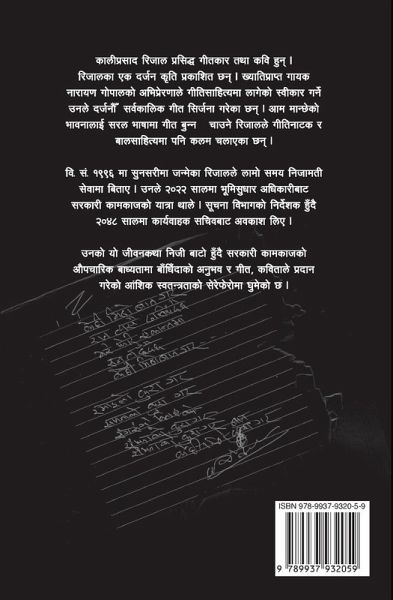 कालीप्रसाद रिजाल प्रसिद्ध गीतकार तथा कवि हुन् ।
रिजालका एक दर्जन कृति प्रकाशित छन् । ख्यातिप्राप्त गायक
नारायण गोपालको अभिप्रेरणाले गीतिसाहित्यमा लागेको स्वीकार गर्ने
उनले दर्जनौँ सर्वकालिक गीत सिर्जना गरेका छन् । आम मान्छेको
भावनालाई सरल भाषामा गीत बुन्न चाउने रिजालले गीतिनाटक र
बालसाहित्यमा पनि कलम चलाएका छन् ।
वि. सं. १९९६ मा सुनसरीमा जन्मेका रिजालले लामो समय निजामती
सेवामा बिताए । उनले २०२२ सालमा भूमिसुधार अधिकारीबाट
सरकारी कामकाजको यात्रा थाले । सूचना विभागको निर्देशक हुँदै
२०४८ सालमा कार्यवाहक सचिवबाट अवकाश लिए ।
उनको यो जीवनकथा निजी बाटो हुँदै सरकारी कामकाजको
औपचारिक बाध्यतामा बाँधिँदाको अनुभव र गीत, कविताले प्रदान
गरेको आंशिक स्वतन्त्रताको सेरेफेरोमा घुमेको छ ।
ISBN 978-9937-9320-5-9
9 789937 932059